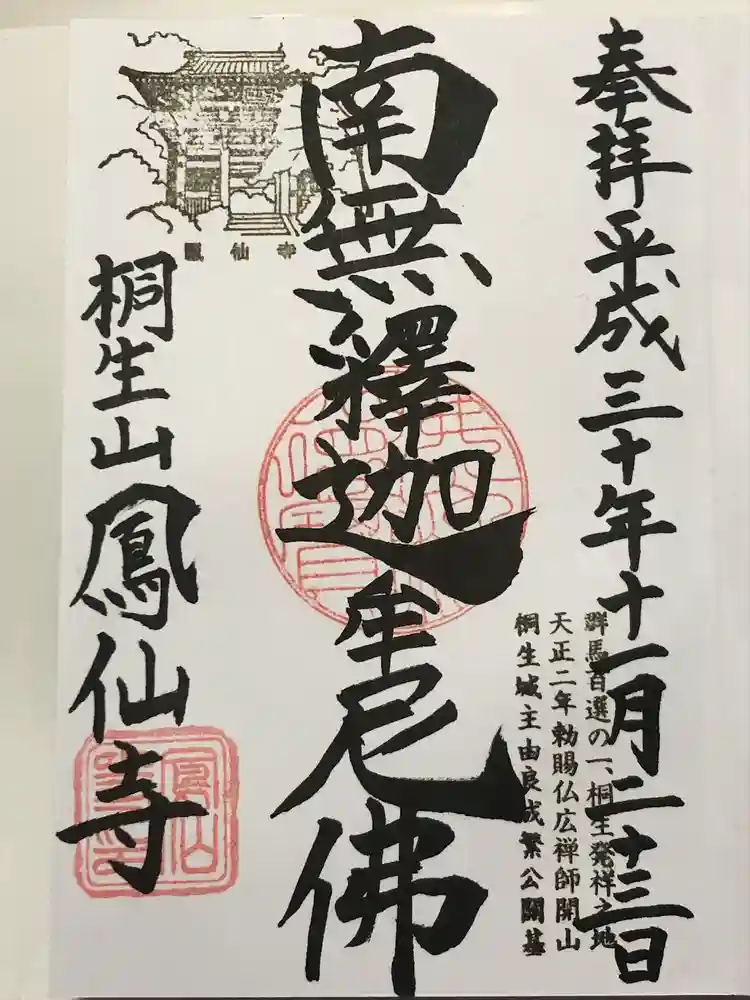 奉拝平成三十年十一月二十三日
群馬百選の一、桐生発祥之地
天正二年勅賜仏広禅師開山
桐生城主由良成繁公開基
南無釋迦牟尼佛
鳳仙寺
桐生山鳳仙寺